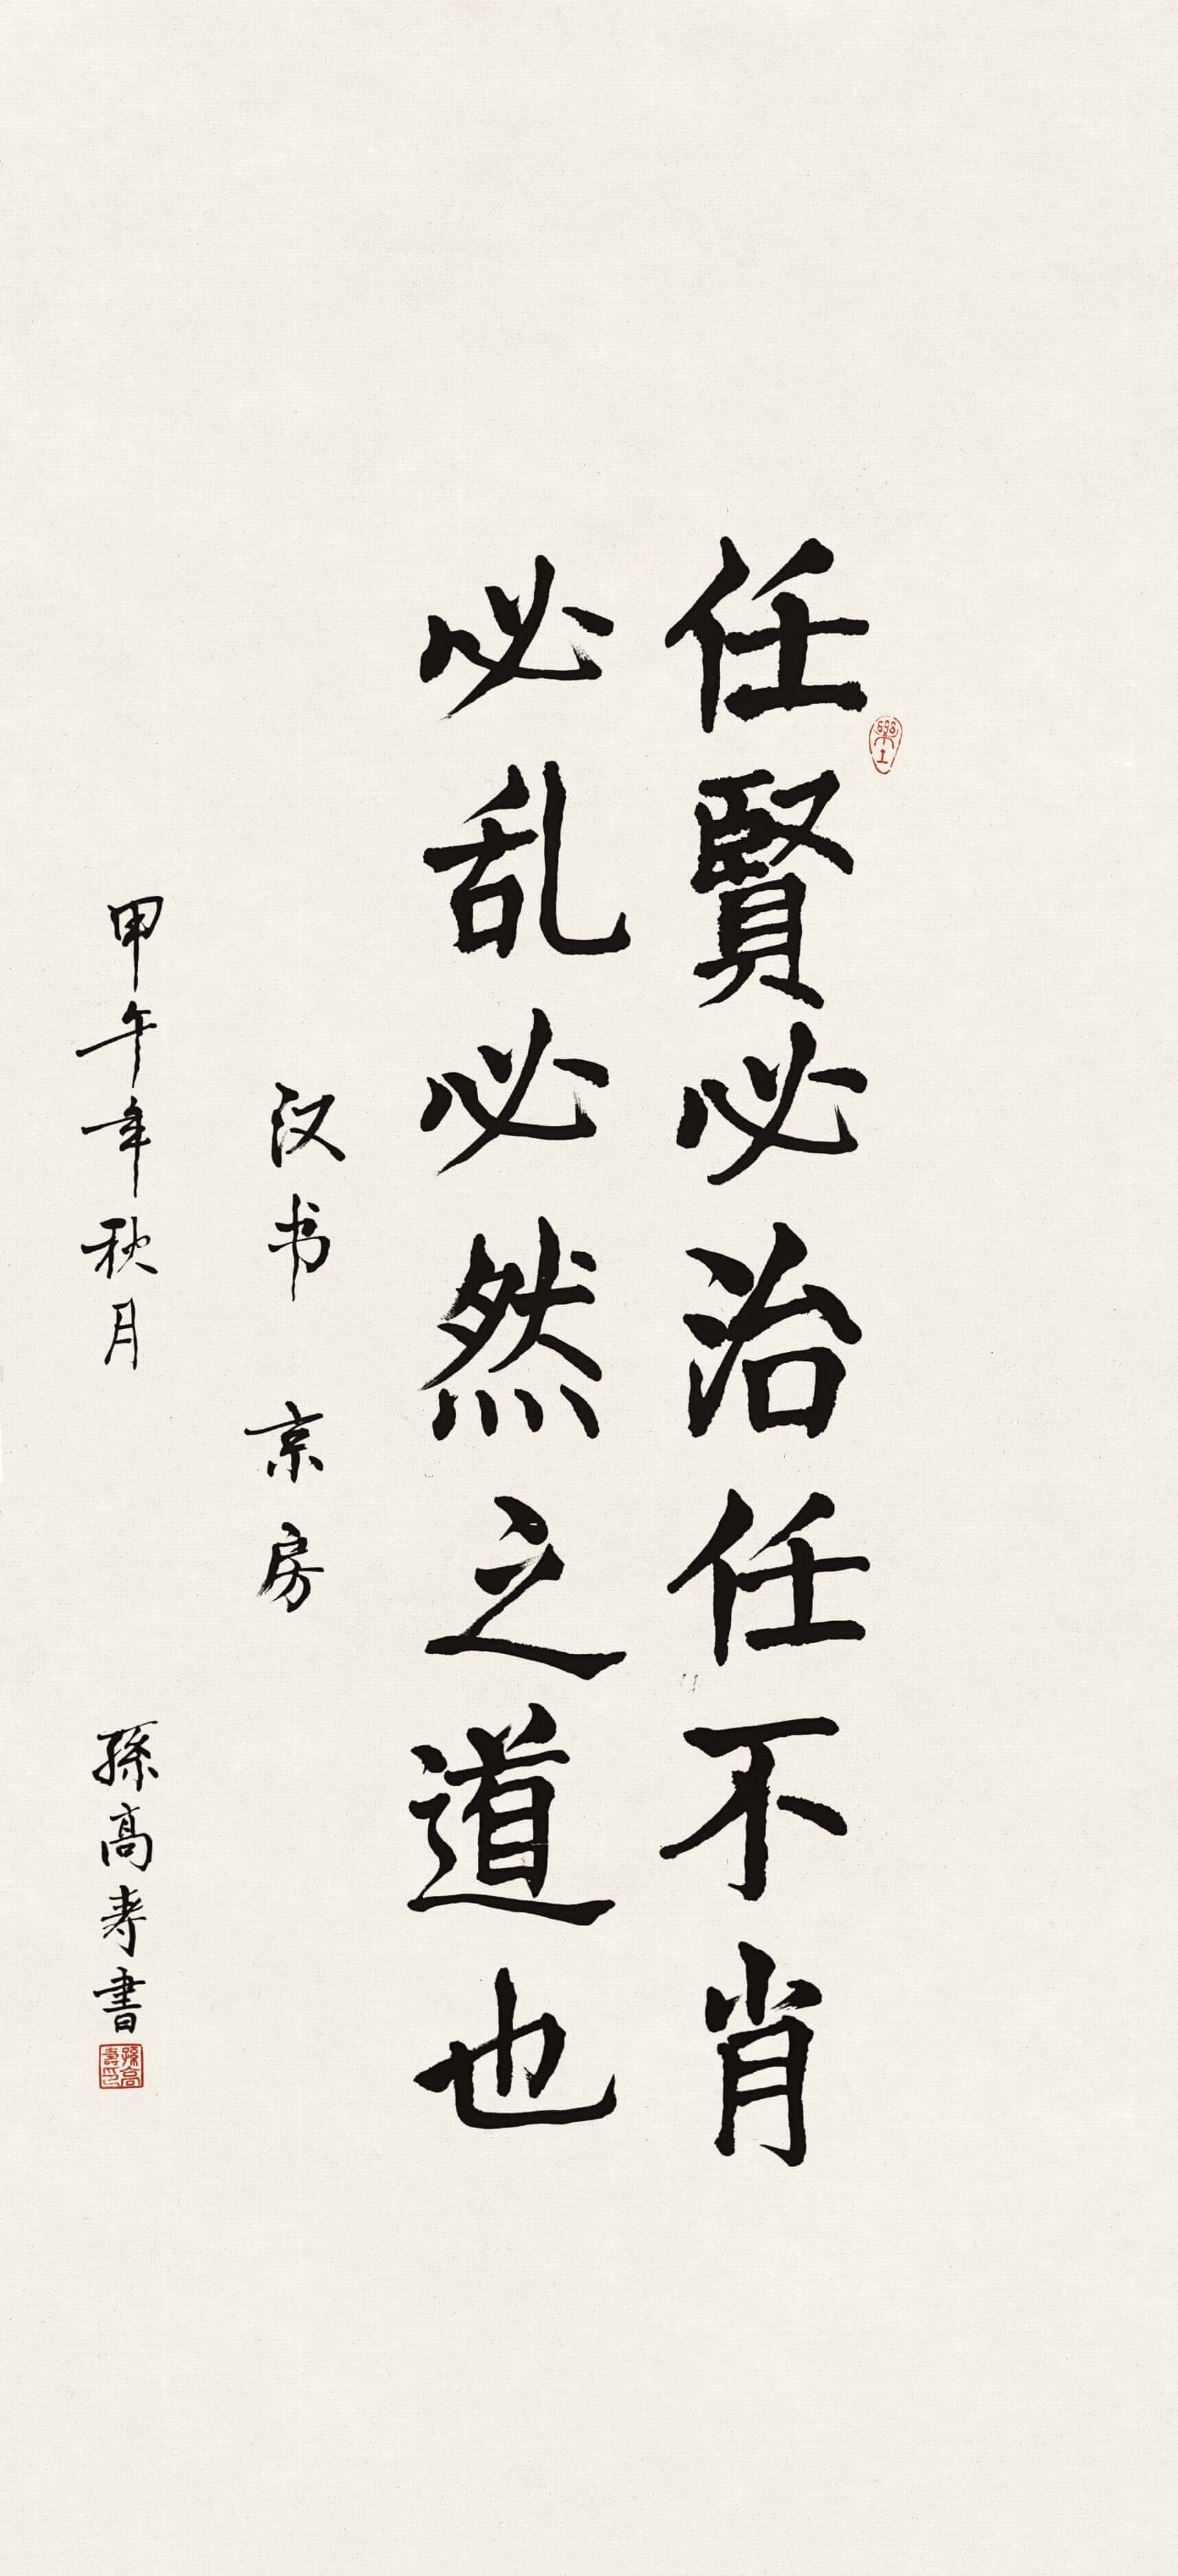 任賢必治任不肖
必乱必然之道也
汉书 京房
甲午年秋月 孫高寿書
孫高壽印